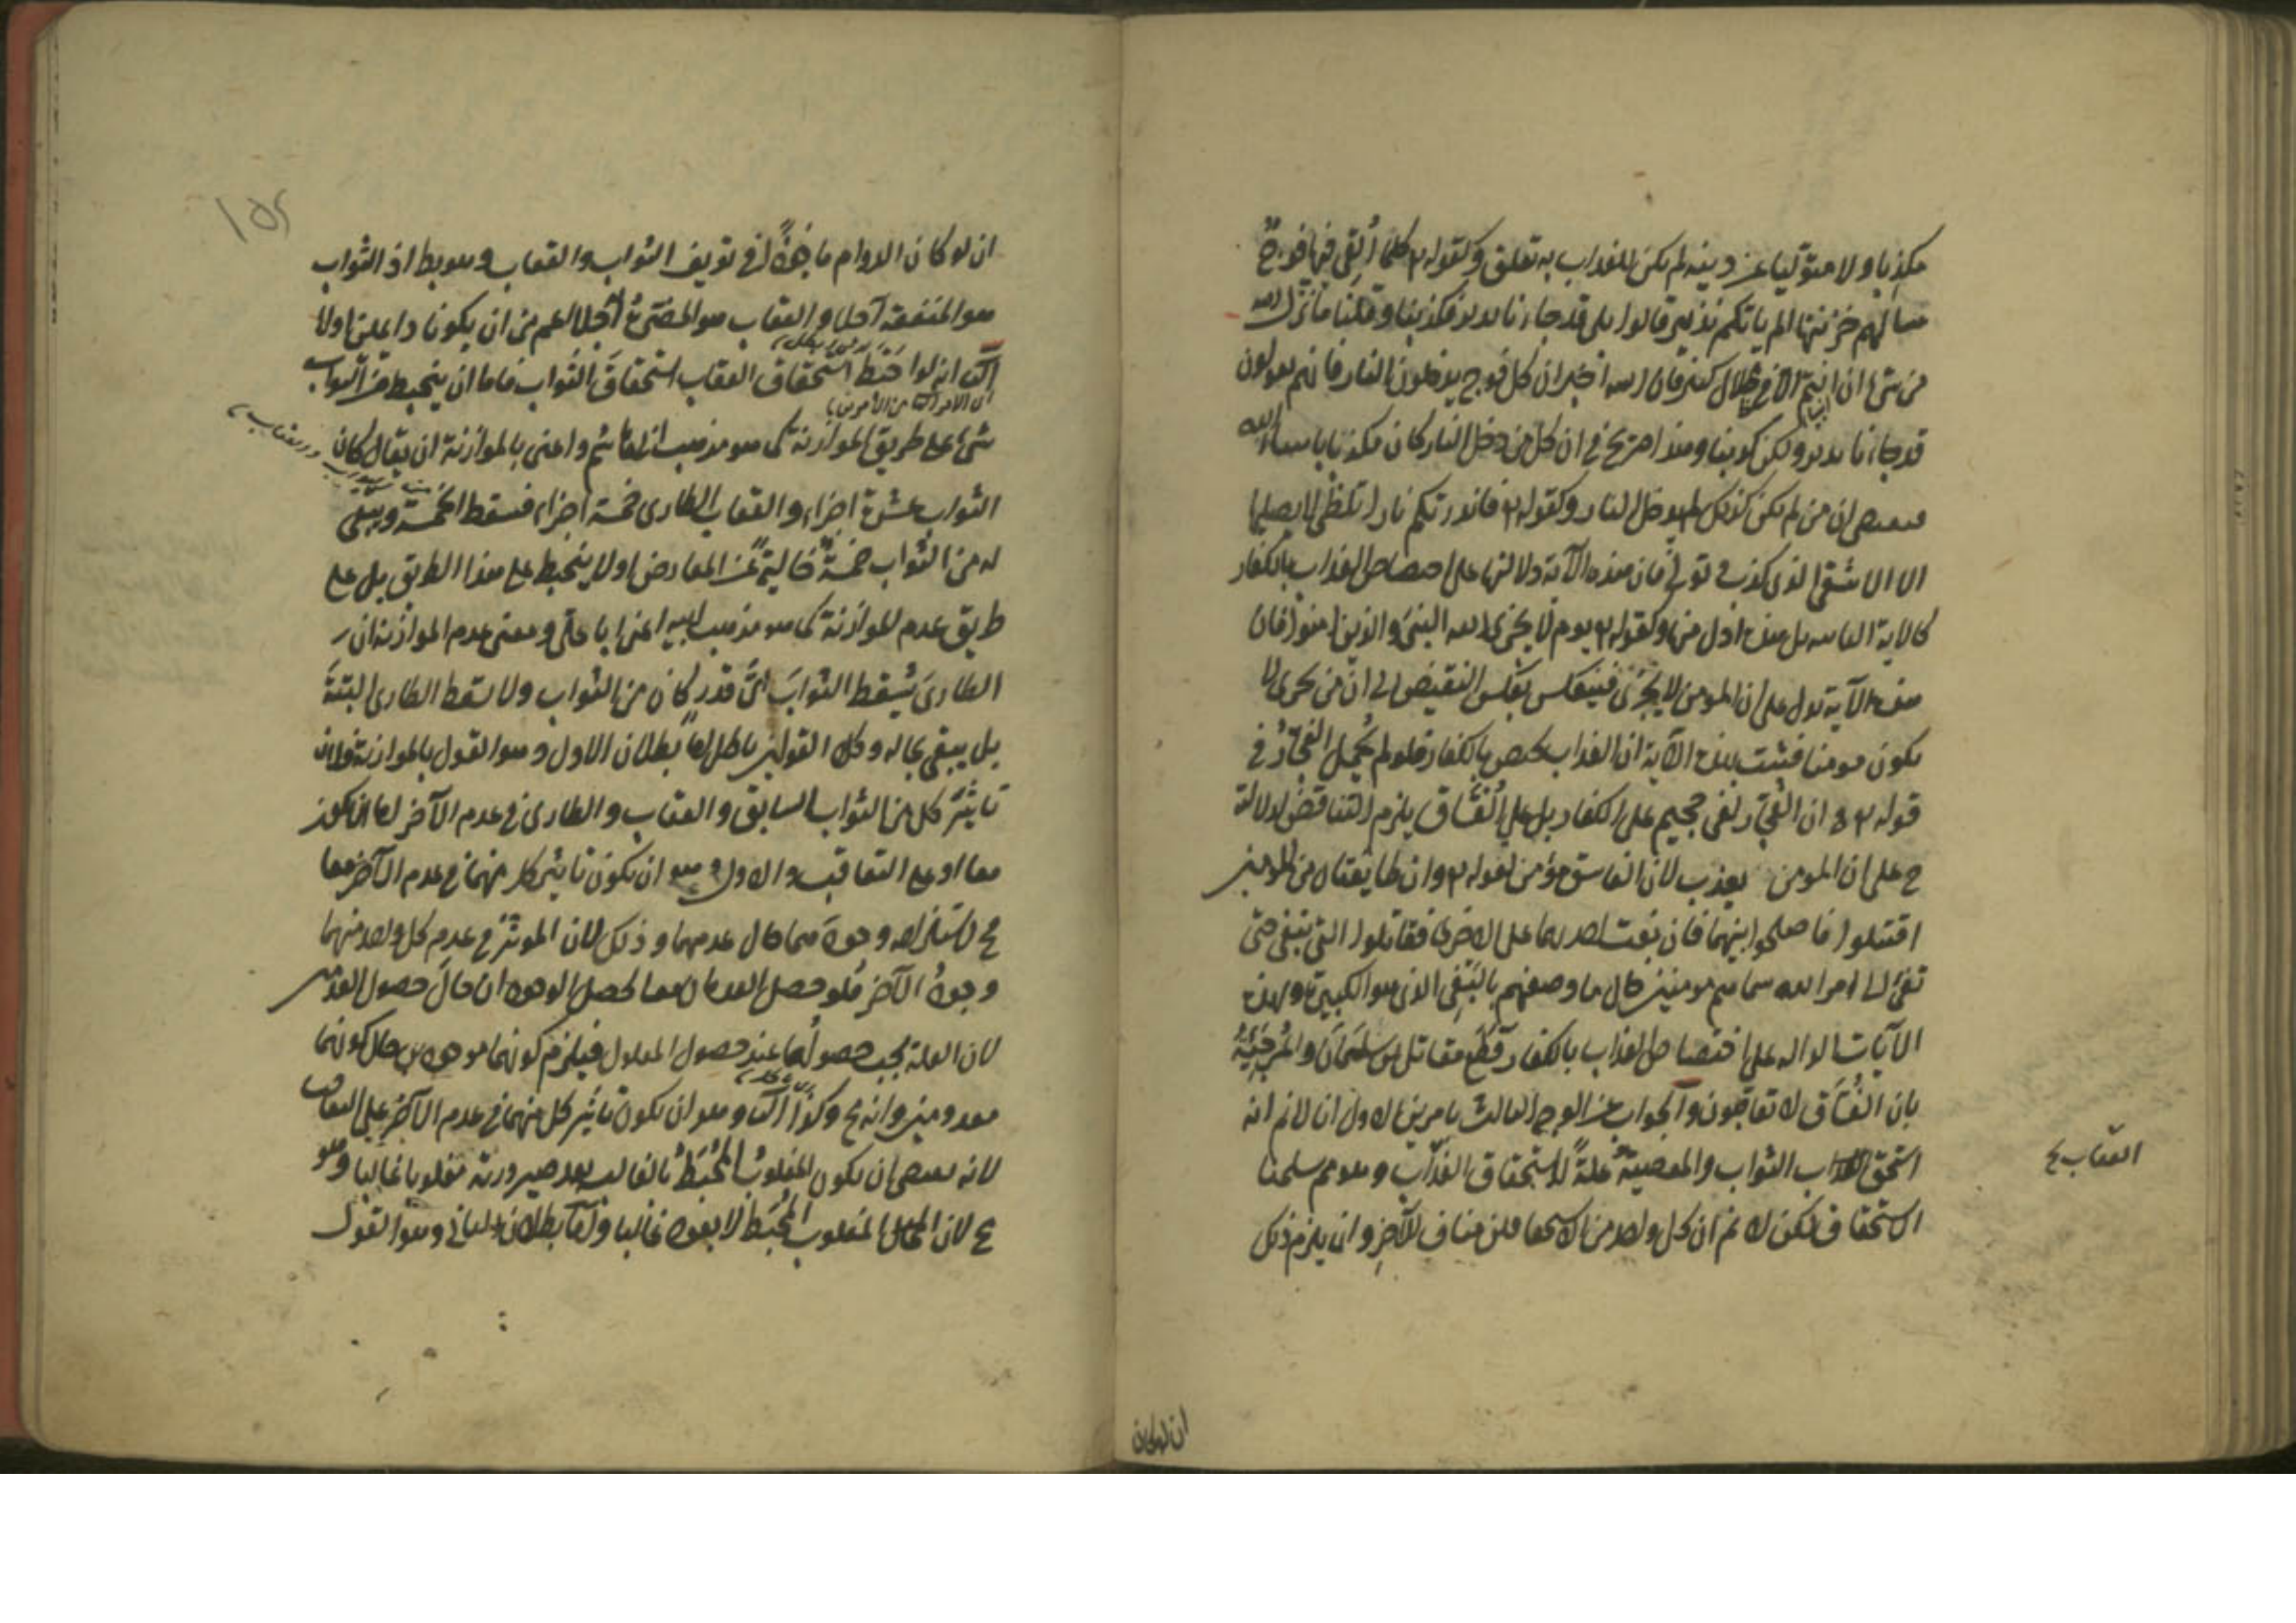 مكذبا ولا متوليا عن دينه لم يكن للعذاب به تعلق وكقوله تع كلما ألقي فيها فوج
سالهم خزنتها الم ياتكم نذير قالوا بلى قد جاءنا نذير فكذبنا وقلنا ما نزل الله
من شئ ان انتم الا في ضلال كبير فان الله اخبر ان كل فوج يدخلون النار فانهم يقولون
قد جاءنا نذير ولكن كذبنا وهذا صريح في ان كل من دخل النار كان مكذبا بايات الله
فيقتضي ان من لم يكن كذلك لم يدخل النار وكقوله تع فانذرتكم نارا تلظى لا يصليها
الا الاشقى الذي كذب وتولى فان هذه الآية دلالتها على اختصاص العذاب بالكفار
كالاية بل هذه ادل منها وكقوله تع يوم لا يخزي الله النبي والذين امنوا فان
هذه الآية تدل على ان المومن لا يخزى فينعكس بعكس النقيض الى ان من يخزى لا
يكون مومنا فثبت بهذه الآية ان العذاب يختص بالكفار فلو لم يحمل الفجار في
قوله تع ان الفجار لفي جحيم على الكفار بل على الفساق يلزم التناقض لدلالته
ح على ان المومن يعذب لان الفاسق مؤمن لقوله تع وان طايفتان من المومنين
اقتتلوا فاصلحوا بينهما فان بغت احديهما على الاخرى فقاتلوا التي تبغي حتى
تفئ الى امر الله سماهم مومنين حال ما وصفهم بالبغي الذي هو الكبيرة وبهذه
الآيات الدالة على اختصاص العذاب بالكفار قطع مقاتل بن سليمان والمرجئة
بان الفساق لا تعاقبون والجواب عن الوجه الثالث بامرين الاول انا لانم انه
استحق الثواب والمعصية علة لاستحقاق العذاب وهو مم سلمنا
العقاب ح
الاستحقاق لكن لا نم ان كل واحد من الاستحقاقين مناف للآخر وان يلزم ذلك
ان لو كان
ان لو كان الدوام ماخوذا في تعريف الثواب والعقاب وهو بط اذ الثواب
هو المنفعة آجلا والعقاب هو المضرة آجلا اعم من ان يكونا دائمين اولا
انه لو احبط استحقاق العقاب استحقاق الثواب فاما ان ينحبط من الثواب
شئ على طريق الموازنة كما هو مذهب ابي هاشم واعني بالموازنة ان يقال كان
الثواب عشرة اجزاء والعقاب الطارى خمسة اجزاء فسقط الخمسة ويبقى
له من الثواب خمسة خالية عن المعارض او لا ينحبط على هذا الطريق بل على
طريق عدم الموازنة كما هو مذهب ابيه اعني ابا على ومعنى عدم الموازنة ان
الطارى يسقط الثواب اي قدر كان من الثواب ولا يسقط الطارى البتة
بل يبقى بحاله وكلا القولين باطل اما بطلان الاول وهو القول بالموازنة فلان
تاثير كل من الثواب السابق والعقاب والطارى في عدم الآخر اما ان يكون
معا او على التعاقب والاول وهو ان يكون تاثير كل منهما في عدم الآخر معا
مح لاستلزامه وجودهما حال عدمهما وذلك لان الموثر في عدم كل واحد منهما
وجود الآخر فلو حصل العدمان معا لحصل الوجودان حال حصول العدمين
لان العلة يجب حصولها عند حصول المعلول فيلزم كونهما موجودين حال كونهما
معدومين وانه مح وكذا الثا وهو ان يكون تاثير كل منهما في عدم الآخر على التعاقب
لانه يقتضي ان يكون المغلوب المحبط بالغالب بعد صيرورته مغلوبا غالبا وهو
مح لان المغلوب المحبط لا يعود غالبا واما بطلان الثاني وهو القول